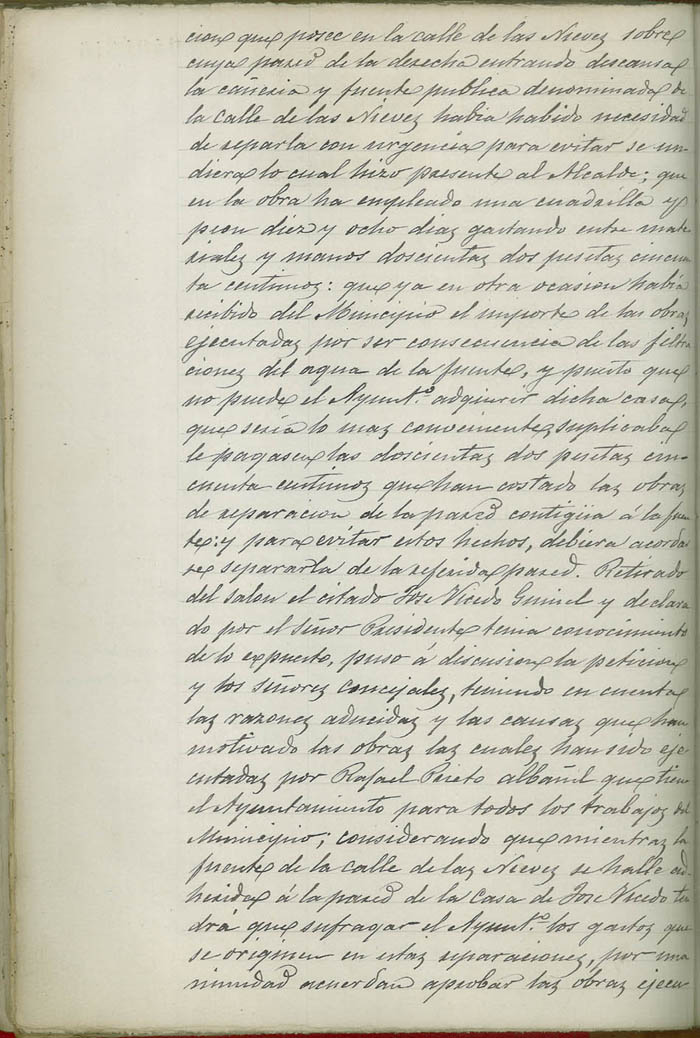 cion que posee en la calle de las Nieves sobre
cuya pared de la derecha entrando descansa
la cañeria y fuente publica denominada de
la calle de las Nieves habia habido necesidad
de reparla con urgencia para evitar se un-
diera lo cual hizo presente al Alcalde; que
en la obra ha empleado una cuadrilla y
peon diez y ocho dias gastando entre mate
riales y manos doscientas dos pesetas cincuen
ta centimos: que ya en otra ocasion habia
recibido del Municipio el importe de las obras
ejecutadas por ser consecuencia de las filtra
ciones del agua de la fuente, y puesto que
no puede el Ayunt.º adquirir dicha casa,
que seria lo mas conveniente, suplicaba
le pagasen las doscientas dos pesetas cin-
cuenta centimos que han costado las obras
de reparacion de la pared contigüa á la fuen
te: y para evitar estos hechos, debiera acordar
se separarla de la referida pared. Retirado
del salon el citado Jose Vicedo Guinel y declara
do por el Señor Presidente tenia conocimiento
de lo expuesto, puso á discusion la peticion
y los Señores Concejales, teniendo en cuenta
las razones aducidas y las causas que han
motivado las obras las cuales han sido eje
cutadas por Rafael Prieto albañil que tiene
el Ayuntamiento para todos los trabajos del
Municipio; considerando que mientras la
fuente de la calle de las Nieves se halle ad-
herida á la pared de la casa de Jose Vicedo ten
drá que sufragar el Ayunt.º los gastos que
se originen en estas reparaciones, por una
nimidad acuerdan aprobar las obras ejecu-